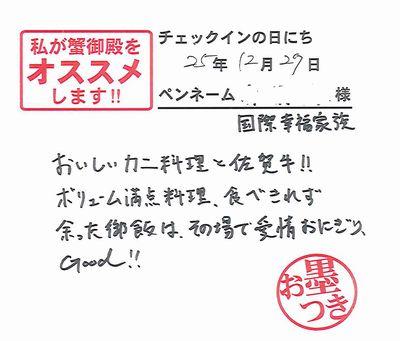 私が蟹御殿を
オススメ
します!!
チェックインの日にち
25年12月29日
ペンネーム 様
国際幸福家族
おいしいカニ料理と佐賀牛!!
ボリューム満点料理、食べきれず
余った御飯は、その場で愛情おにぎり、
Good!!
お墨つき